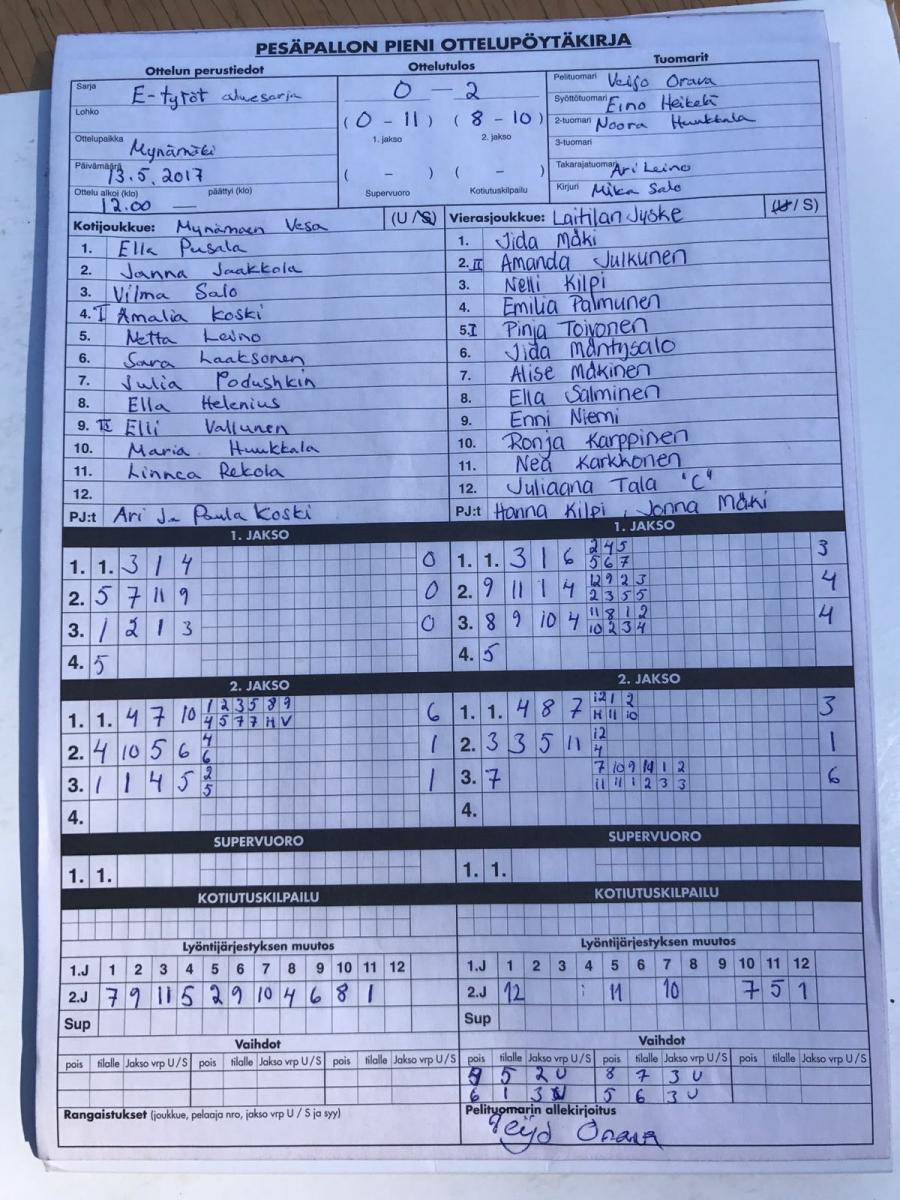 PESÄPALLON PIENI OTTELUPÖYTÄKIRJA
Ottelun perustiedot Ottelutulos Tuomarit
Sarja E-tytöt aluesarja
Lohko
Ottelupaikka Mynämäki
Päivämäärä 13.5.2017
Ottelu alkoi (klo) päättyi (klo)
12.00 —
0 - 2
(0 - 11) (8 - 10)
1. jakso 2. jakso
( - ) ( - )
Supervuoro Kotiutuskilpailu
Pelituomari Veijo Orava
Syöttötuomari Eino Heikelä
2-tuomari Noora Huukkala
3-tuomari
Takarajatuomari Ari Leino
Kirjuri Mika Salo
Kotijoukkue: Mynämäen Vesa (U/S)
1. Ella Pusala
2. Janna Jaakkola
3. Vilma Salo
4. I Amalia Koski
5. Netta Leino
6. Sara Laaksonen
7. Julia Podushkin
8. Ella Helenius
9. II Elli Vallunen
10. Maria Huukkala
11. Linnea Rekola
12.
PJ:t Ari Ja Paula Koski
Vierasjoukkue: Laitilan Jyske (U/S)
1. Jida Mäki
2. II Amanda Julkunen
3. Nelli Kilpi
4. Emilia Palmunen
5. I Pinja Toivonen
6. Jida Mäntysalo
7. Alise Mäkinen
8. Ella Salminen
9. Enni Niemi
10. Ronja Karppinen
11. Nea Karkkonen
12. Juliaana Tala "C"
PJ:t Hanna Kilpi, Jonna Mäki
1. JAKSO
1. 1. 3 1 4 0
2. 5 7 11 9 0
3. 1 2 1 3 0
4. 5
1. JAKSO
1. 1. 3 1 6 2 4 5 3
5 6 7
2. 9 11 1 4 12 9 2 3 4
2 3 5 5
3. 8 9 10 4 11 8 1 2 4
10 2 3 4
4. 5
2. JAKSO
1. 1. 4 7 10 1 2 3 5 8 9 6
4 5 7 7 H V
2. 4 10 5 6 4 1
6
3. 1 1 4 5 2 1
5
4.
2. JAKSO
1. 1. 4 8 7 12 1 2 3
H 11 10
2. 3 3 5 11 12 1
4
3. 7 7 10 9 1 2 6
11 11 1 2 3 3
4.
SUPERVUORO
1. 1.
SUPERVUORO
1. 1.
KOTIUTUSKILPAILU
KOTIUTUSKILPAILU
Lyöntijärjestyksen muutos
1.J 1 2 3 4 5 6 7 8 9 10 11 12
2.J 7 9 11 5 2 9 10 4 6 8 1
Sup
Lyöntijärjestyksen muutos
1.J 1 2 3 4 5 6 7 8 9 10 11 12
2.J 12 11 10 7 5 1
Sup
Vaihdot
pois tilalle Jakso vrp U/S pois tilalle Jakso vrp U/S pois tilalle Jakso vrp U/S
Vaihdot
pois tilalle Jakso vrp U/S pois tilalle Jakso vrp U/S pois tilalle Jakso vrp U/S
9 5 2 U 8 7 3 U
6 1 3 U 5 6 3 U
Rangaistukset (joukkue, pelaaja nro, jakso vrp U / S ja syy)
Pelituomarin allekirjoitus
Veijo Orava